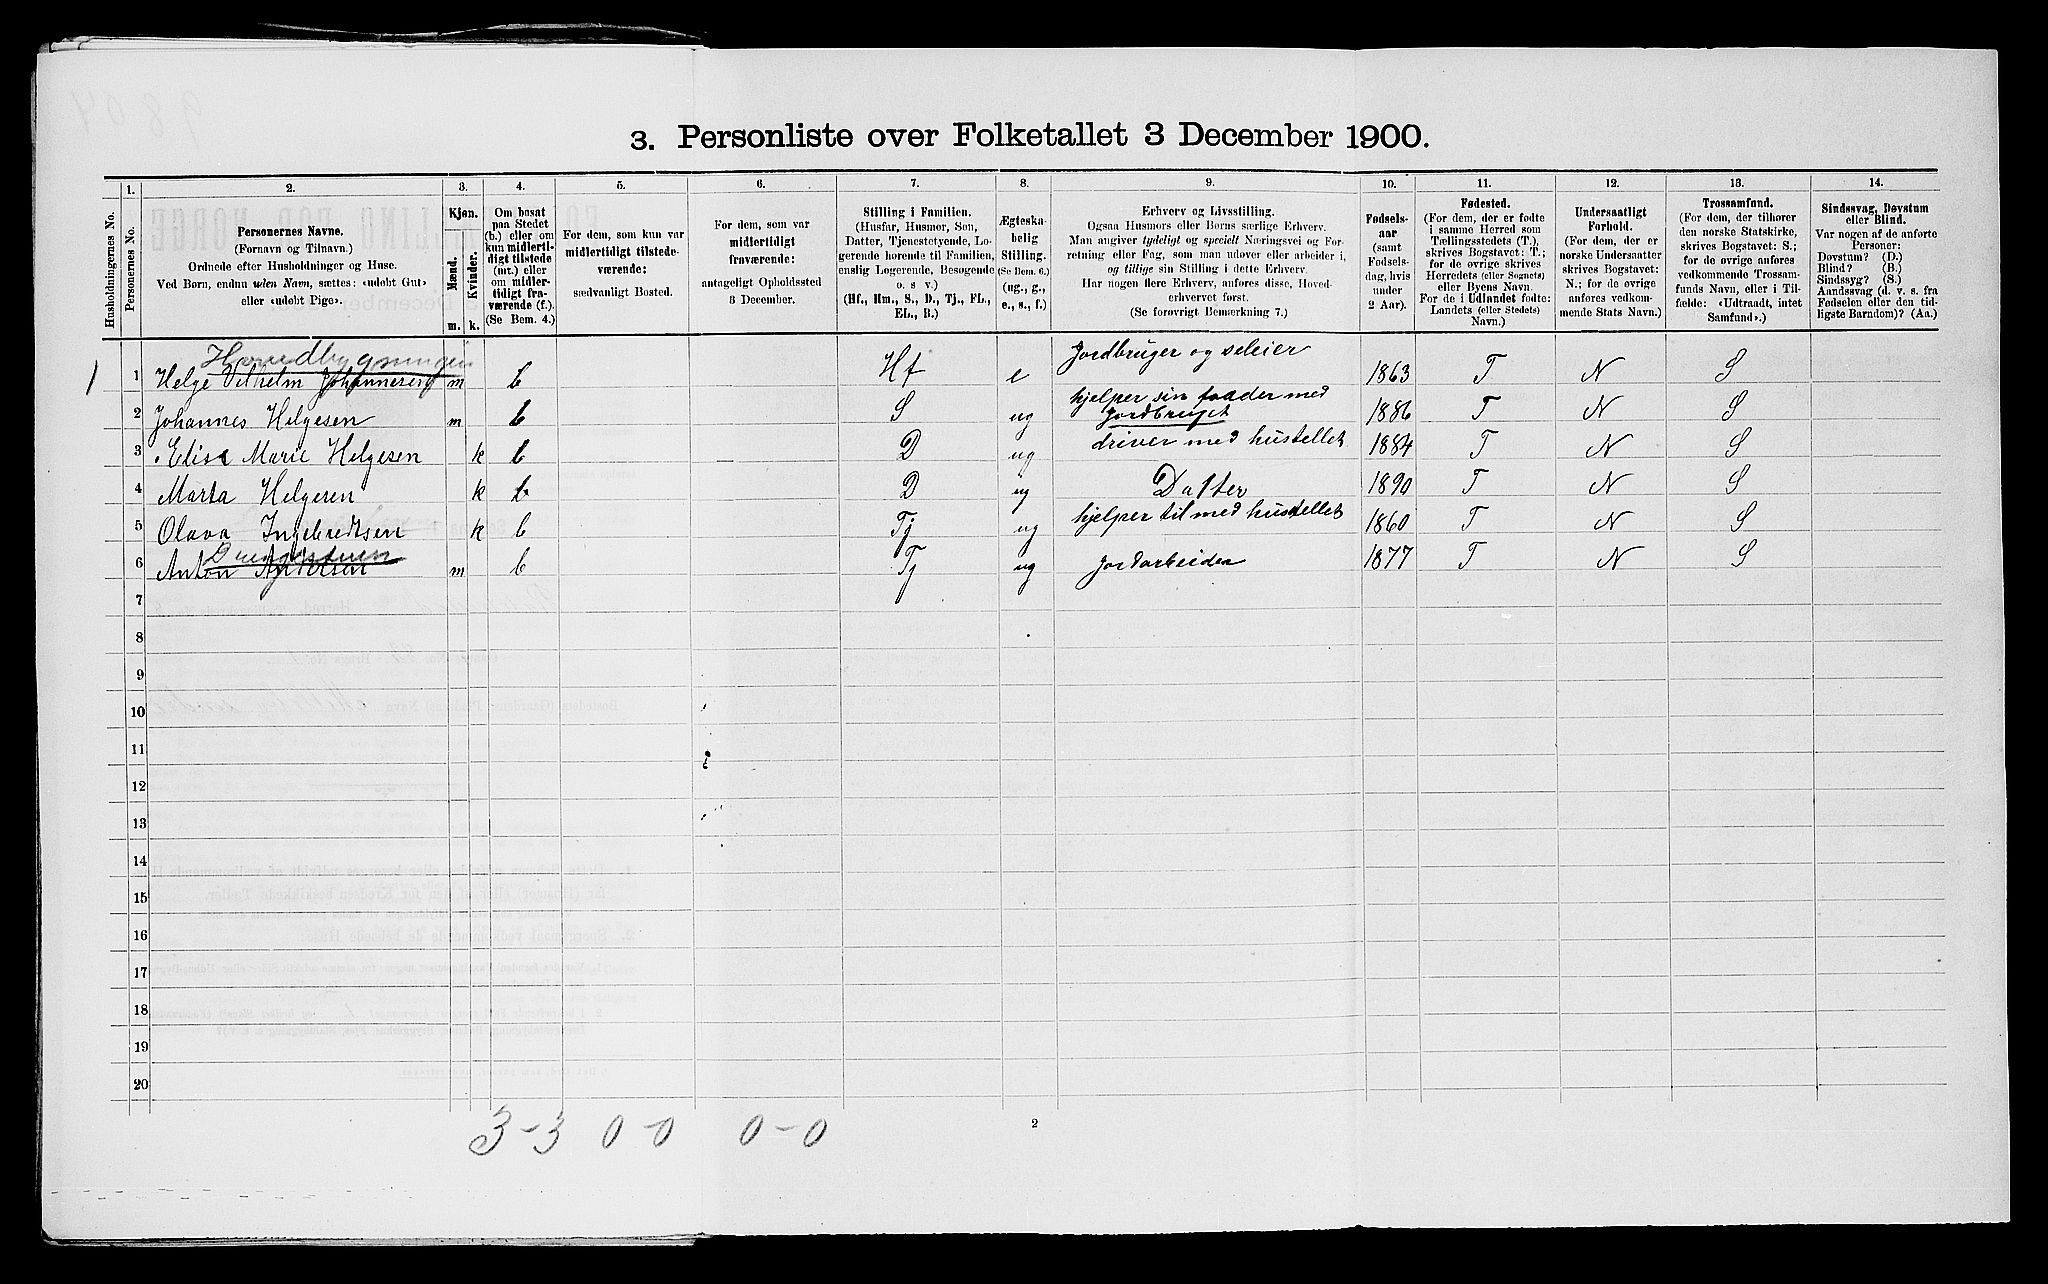 3. Personliste over Folketallet 3 December 1900.
1. 2. 3. 4. 5. 6. 7. 8. 9. 10. 11. 12. 13. 14.
Husholdningernes No.
Personernes No.
Personernes Navne.
(Fornavn og Tilnavn.)
Ordnede efter Husholdninger og Huse.
Ved Børn, endnu uden Navn, sættes: «udøbt Gut»
eller «udøbt Pige».
Kjøn.
Mænd.
Kvinder.
m. k.
Om bosat
paa Stedet
(b.) eller om
kun midlerti-
digt tilstede
(mt.) eller
om midler-
tidigt fra-
værende (f.).
(Se Bem. 4.)
For dem, som kun var
midlertidigt tilstede-
værende:
sædvanligt Bosted.
For dem, som var
midlertidigt
fraværende:
antageligt Opholdssted
3 December.
Stilling i Familien.
(Husfar, Husmor, Søn,
Datter, Tjenestetyende, Lo-
gerende hørende til Familien,
enslig Logerende, Besøgende
o. s v.)
(Hf., Hm., S., D., Tj., FL.,
EL., B.)
Ægteska-
belig
Stilling.
(Se Bem. 6.)
(ug., g.,
e., s., f.)
Erhverv og Livsstilling.
Ogsaa Husmors eller Børns særlige Erhverv.
Man angiver tydeligt og specielt Næringsvei og For-
retning eller Fag, som man udøver eller arbeider i,
og tillige sin Stilling i dette Erhverv.
Har nogen flere Erhverv, anføres disse, Hoved-
erhvervet først.
(Se forøvrigt Bemærkning 7.)
Fødsels-
aar
(samt
Fødsels-
dag, hvis
under
2 Aar).
Fødested.
(For dem, der er fødte
i samme Herred som
Tællingsstedets (T.),
skrives Bogstavet: T.;
for de øvrige skrives
Herredets (eller Sognets)
eller Byens Navn.
For de i Udlandet fødte:
Landets (eller Stedets)
Navn.)
Undersaatligt
Forhold.
(For dem, der er
norske Undersaatter
skrives Bogstavet:
N.; for de øvrige
anføres vedkom-
mende Stats Navn.)
Trossamfund.
(For dem, der tilhører
den norske Statskirke,
skrives Bogstavet: S.;
for de øvrige anføres
vedkommende Trossam-
funds Navn, eller i Til-
fælde: «Udtraadt, intet
Samfund».)
Sindssvag, Døvstum
eller Blind.
Var nogen af de anførte
Personer:
Døvstum? (D.)
Blind? (B.)
Sindssyg? (S.)
Aandssvag (d. v. s. fra
Fødselen eller den tid-
ligste Barndom)? (Aa.)
Hovedbygningen
1 1 Helge Vilhelm Johannesen m b Hf e Jordbruger og seleier 1863 T N S
2 Johannes Helgesen m b S ug hjelper sin faader med Jordbruget 1886 T N S
3 Elisa Marie Helgesen k b D ug driver med hustellet 1884 T N S
4 Marta Helgesen k b D ug Datter 1890 T N S
5 Olava Ingebredtsen k b Tj ug hjelper til med hustellet 1860 T N S
6 Anton Andersen m b Tj ug Jordarbeider 1877 T N S
7
8
9
10
11
12
13
14
15
16
17
18
19
20
3-3 0-0 0-0
2